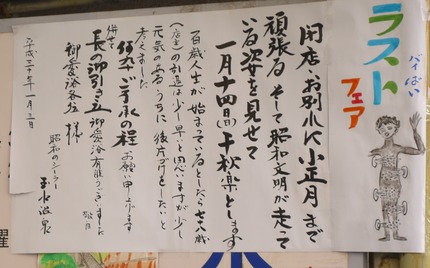 バイばい
ラスト
フェア
閉店・お別れに小正月まで
頑張る そして昭和文明が走って
いる姿を見せて
一月十四(日)千秋楽とします
百歳人生が始まっているとしたら七八歳
(店主)の引退は少し早いと思いますが 少し
元気の あるうちに 後片づけをしたいと
考えました
何卒ご了承の程 お願い申し上げます
併せて
長の御引き立 御愛浴有難うございました
敬白
御愛浴各位 様
昭和のシーラー
玉水
平成三十年一月三日